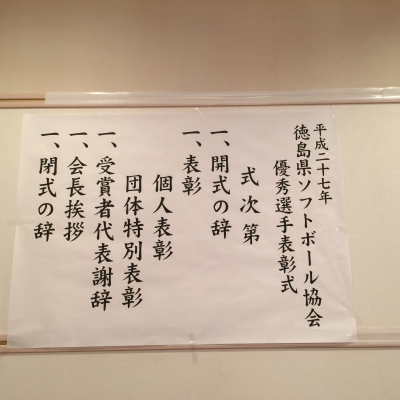 平成二十七年
徳島県ソフトボール協会
優秀選手表彰式
式次第
一、開式の辞
一、表彰
個人表彰
団体特別表彰
一、受賞者代表謝辞
一、会長挨拶
一、閉式の辞